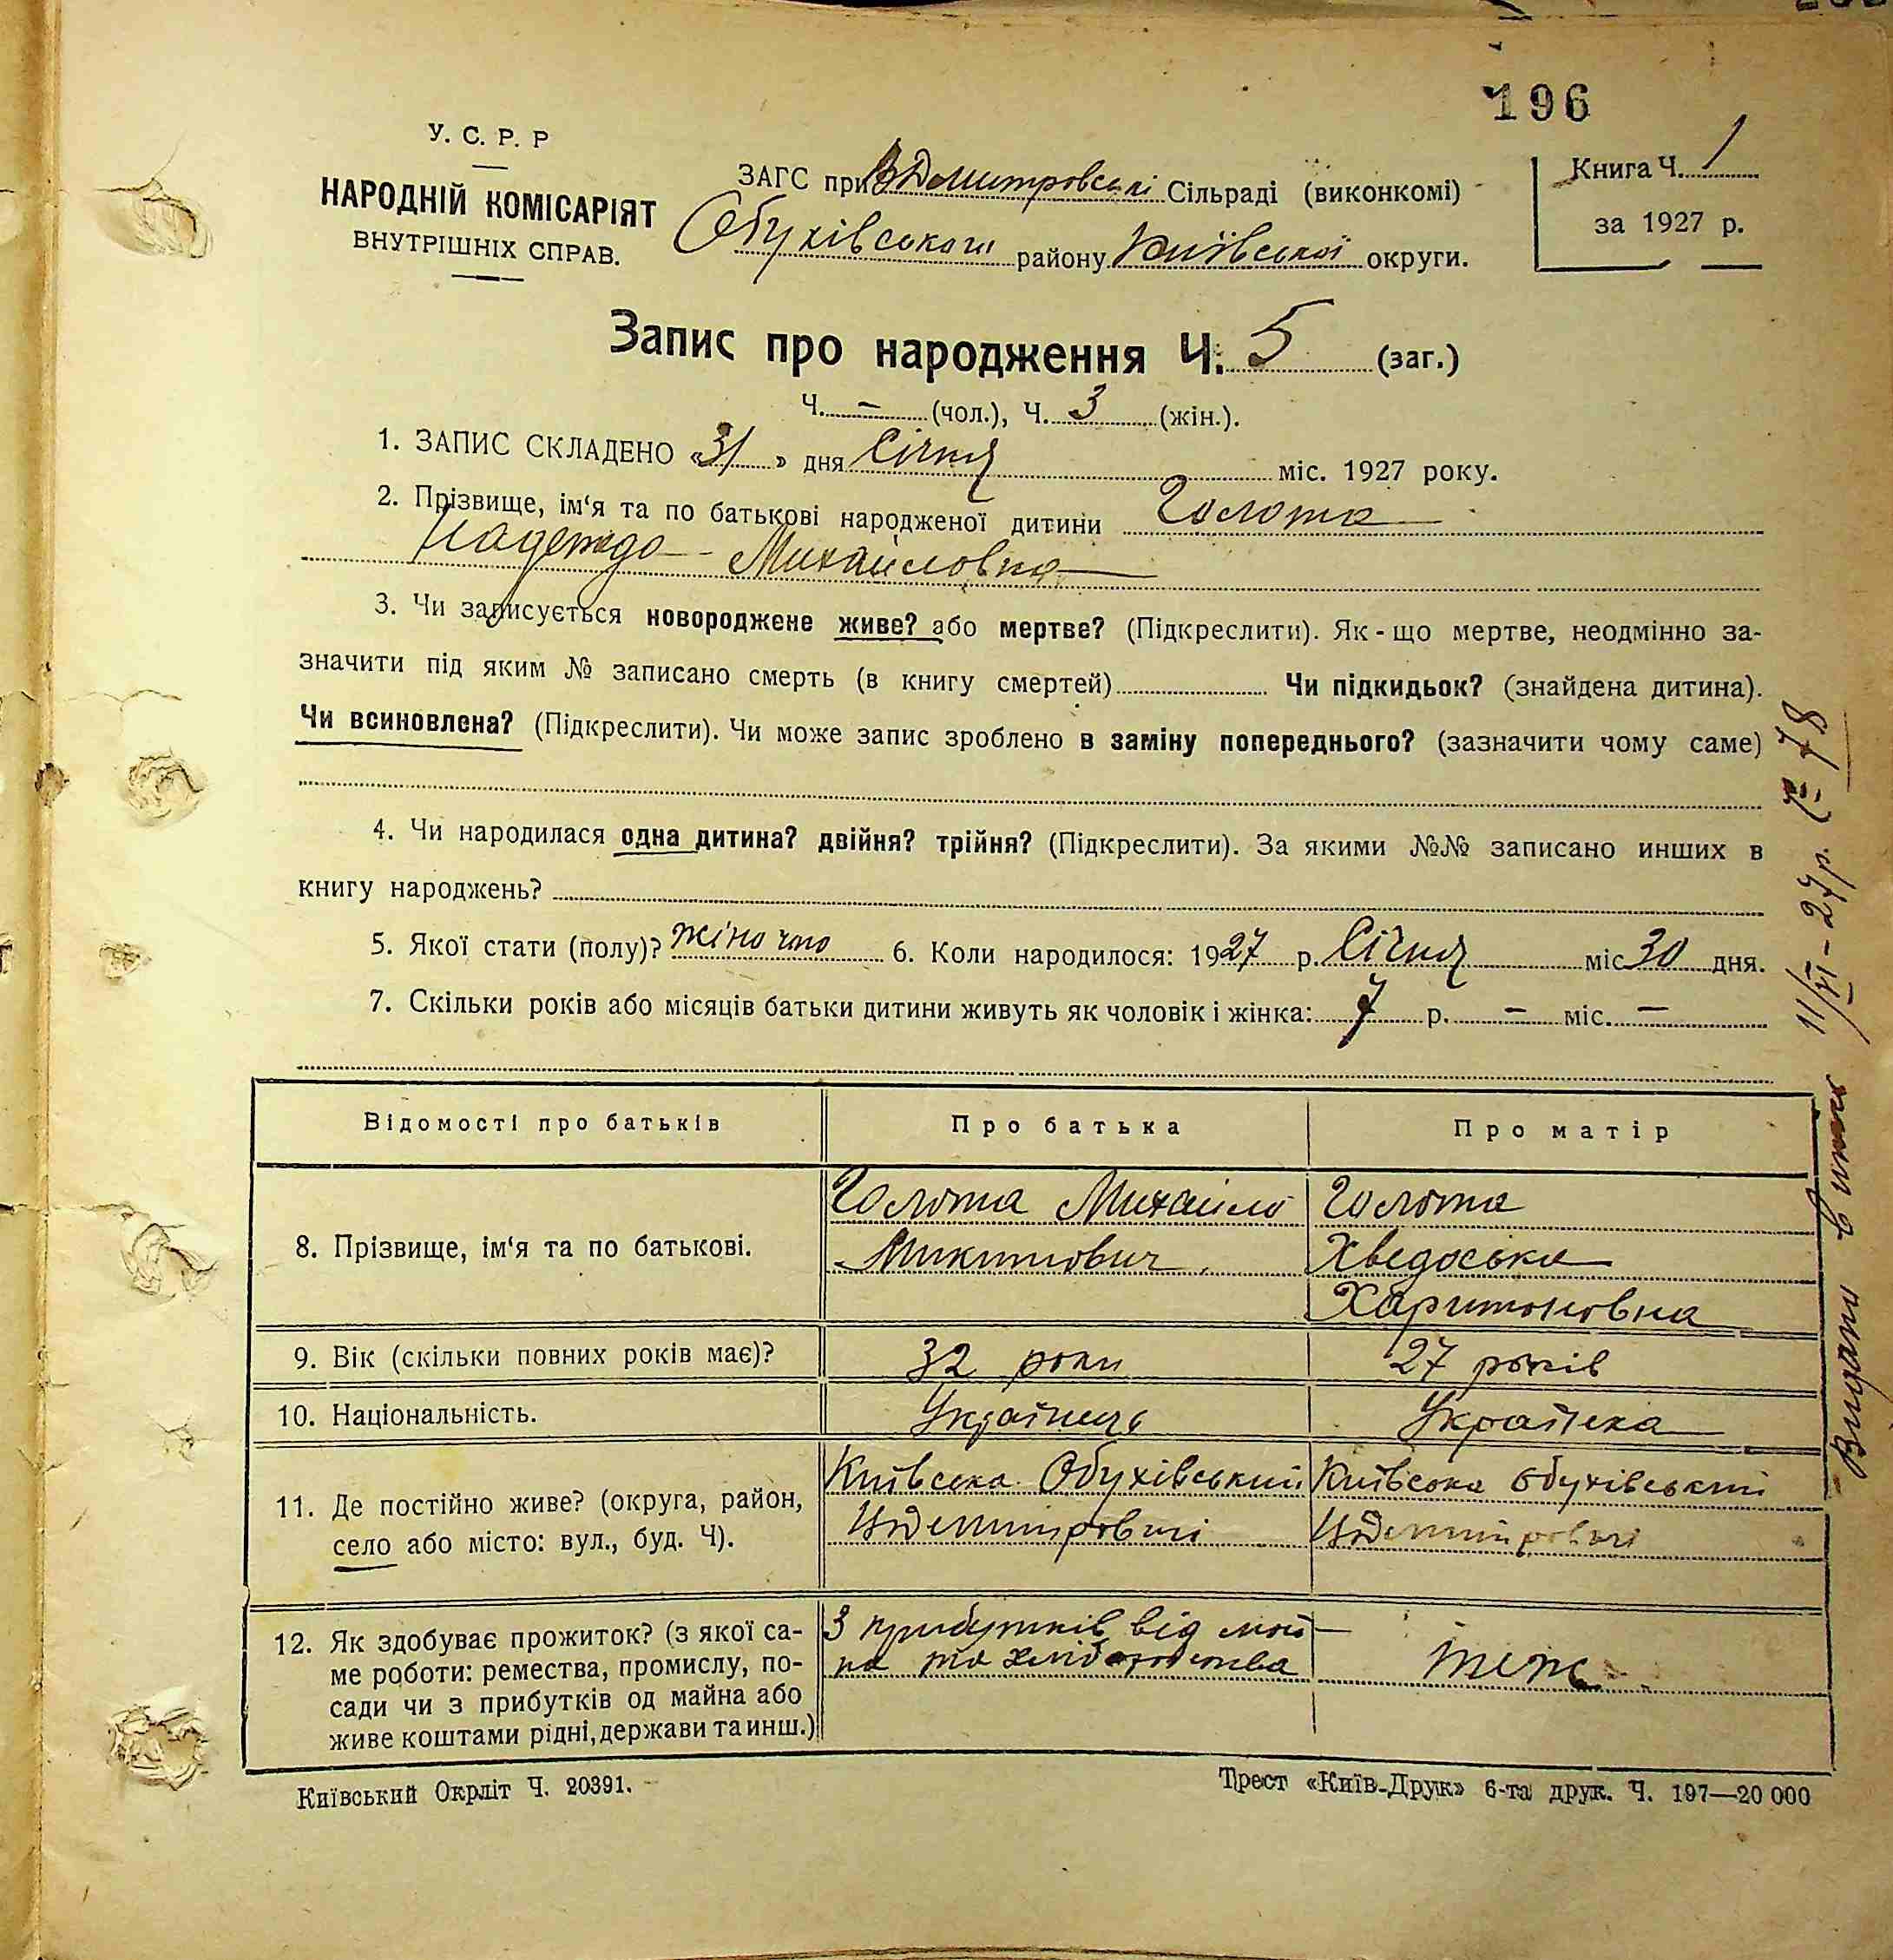 196
У. С. Р. Р
НАРОДНІЙ КОМІСАРІЯТ
ВНУТРІШНІХ СПРАВ.
ЗАГС при Сільраді (виконкомі)
Обухівського району Київської округи.
Книга Ч. 1
за 1927 р.
Запис про народження Ч. 5 (заг.)
Ч. — (чол.), Ч. 3 (жін.).
1. ЗАПИС СКЛАДЕНО «31» дня Січня міс. 1927 року.
2. Прізвище, ім‘я та по батькові народженої дитини Голота
Надежда Михайловна
3. Чи записується новороджене живе? або мертве? (Підкреслити). Як-що мертве, неодмінно за-
значити під яким № записано смерть (в книгу смертей) Чи підкидьок? (знайдена дитина).
Чи всиновлена? (Підкреслити). Чи може запис зроблено в заміну попереднього? (зазначити чому саме)
4. Чи народилася одна дитина? двійня? трійня? (Підкреслити). За якими №№ записано инших в
книгу народжень?
5. Якої стати (полу)? жіночо 6. Коли народилося: 1927 р. Січня міс 30 дня.
7. Скільки років або місяців батьки дитини живуть як чоловік і жінка: 7 р. — міс. —
Відомості про батьків Про батька Про матір
8. Прізвище, ім‘я та по батькові.
Голота Михайло
Микитович
Голота
Хведоська
Харитоновна
9. Вік (скільки повних років має)? 32 роки 27 років
10. Національність. Українець Українка
11. Де постійно живе? (округа, район,
село або місто: вул., буд. Ч).
Київська Обухівський
Київська Обухівський
12. Як здобуває прожиток? (з якої са-
ме роботи: ремества, промислу, по-
сади чи з прибутків од майна або
живе коштами рідні, держави та инш.)
З прибутків від май-
на та хліборобства
теж
Київський Окрліт Ч. 20391.
Трест «Київ-Друк» 6-та друк. Ч. 197—20 000
11/VI-27р.